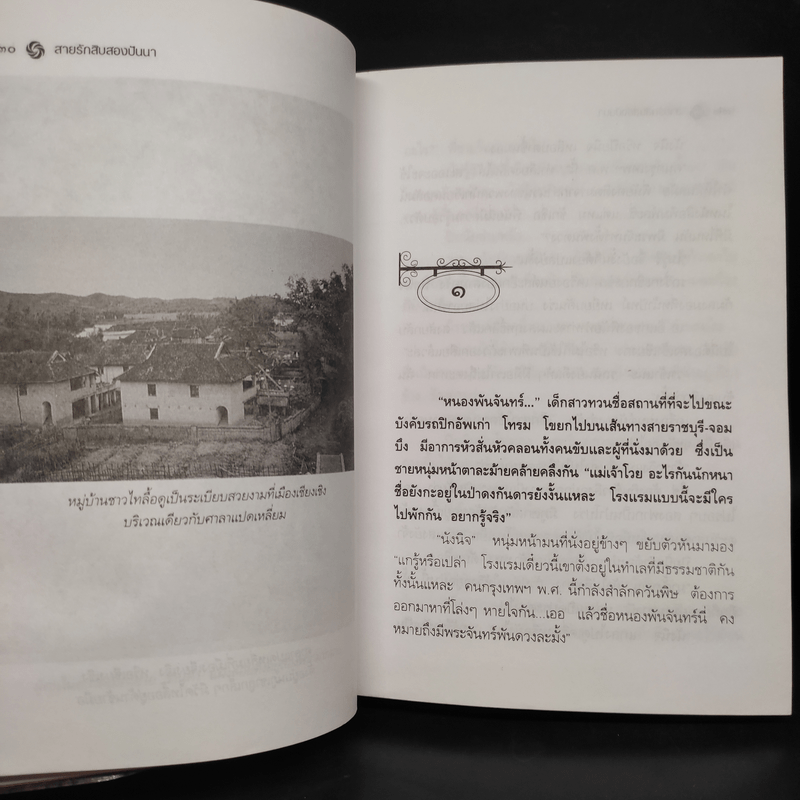 ๓๐ สายรักสิบสองปันนา
หมู่บ้านชาวไทลื้อดูเป็นระเบียบสวยงามที่เมืองเชียงเจิง
บริเวณเดียวกับศาลาแปดเหลี่ยม
๑
"หนองพันจันทร์..." เด็กสาวทวนชื่อสถานที่ที่จะไปขณะ
บังคับรถปิกอัพเก่า โทรม โขยกไปบนเส้นทางสายราชบุรี-จอม
บึง มีอาการหัวสั่นหัวคลอนทั้งคนขับและผู้ที่นั่งมาด้วย ซึ่งเป็น
ชายหนุ่มหน้าตาละม้ายคล้ายคลึงกัน "แม่เจ้าโวย อะไรกันนักหนา
ชื่อยังกะอยู่ในป่าดงกันดารยังงั้นแหละ โรงแรมแบบนี้จะมีใคร
ไปพักกัน อยากรู้จริง"
"นังนิจ" หนุ่มหน้ามนที่นั่งอยู่ข้างๆ ขยับตัวหันมามอง
"แกรู้หรือเปล่า โรงแรมเดี๋ยวนี้เขาตั้งอยู่ในทำเลที่มีธรรมชาติกัน
ทั้งนั้นแหละ คนกรุงเทพฯ พ.ศ. นี้กำลังสำลักควันพิษ ต้องการ
ออกมาหาที่โล่งๆ หายใจกัน...เออ แล้วชื่อหนองพันจันทร์นี่ คง
หมายถึงมีพระจันทร์พันดวงละมั้ง"